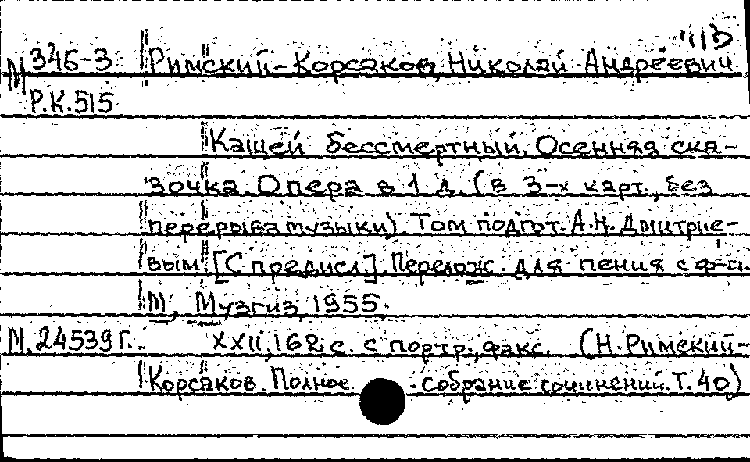 М 346-3 Римский-Корсаков, Николай Андреевич
Р.К.515
Кащей бессмертный. Осенняя ска-
зочка. Опера в 1 д. (в 3-х карт., без
перерыва музыки). Том подгот. А.Н. Дмитрие-
вым [С предисл.]. Перелож. для пения с ф-п.
М., Музгиз, 1955.
М.24539г. XXII, 162 с. с портр., факс. (Н. Римский-
Корсаков. Полное собрание сочинений. Т. 40)